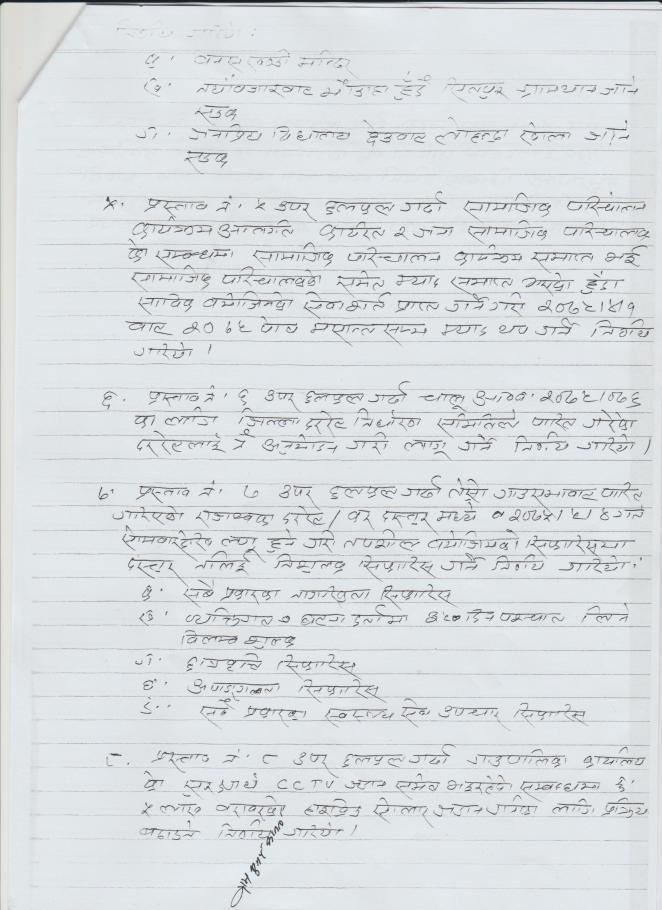 निर्णय गरियो :
क. वनसखण्डी मन्दिर
ख. नयाँबजारबाट हुँदै ग्रामथान जाने
सडक
ग. जनप्रिय विद्यालय देउवाट लोहन्द्रा खोला जाने
सडक
५. प्रस्ताव नं. ५ उपर छलफल गर्दा सामाजिक परिचालन
कार्यक्रम अन्तर्गत कार्यरत २ जना सामाजिक परिचालक
को सम्बन्धमा सामाजिक परिचालन कार्यक्रम समाप्त भई
सामाजिक परिचालकको समेत म्याद समाप्त भएको हुँदा
साविक बमोजिमको सेवा शर्त प्राप्त गर्ने गरी २०७५।४।१
बाट २०७५ पौष मसान्त सम्म म्याद थप गर्ने निर्णय
गरियो ।
६. प्रस्ताव नं. ६ उपर छलफल गर्दा चालू आ.व. २०७५।०७६
का लागि जिल्ला दररेट निर्धारण समितिले पारित गरेको
दररेटलाई नै अनुमोदन गरी लागू गर्ने निर्णय गरियो ।
७. प्रस्ताव नं. ७ उपर छलफल गर्दा तेस्रो गाउसभाबाट पारित
गरिएको राजश्वका दररेट / कर दस्तुर मध्ये २०७५।५।४ गते
सोमबारदेखि लागू हुने गरी तपशिल बमोजिमको सिफारिसमा
दस्तुर नलिई निःशुल्क सिफारिस गर्ने निर्णय गरियो :
क. सबै प्रकारका नागरिकता सिफारिस
ख. व्यक्तिगत घटना दर्तामा दिन पश्चात लिने
विलम्ब शुल्क
ग. छात्रवृत्ति सिफारिस
घ. अपाङ्गता सिफारिस
ङ. सबै प्रकारका स्वास्थ्य सेवा उपचार सिफारिस
८. प्रस्ताव नं. ८ उपर छलफल गर्दा गाउपालिका कार्यालय
को सुरक्षार्थ CCTV जडान समेत भइरहेको सम्बन्धमा रु.
५ लाख बराबरको हाइब्रिड सोलार जडान गर्नका लागि प्रक्रिया
बढाउने निर्णय गरियो ।